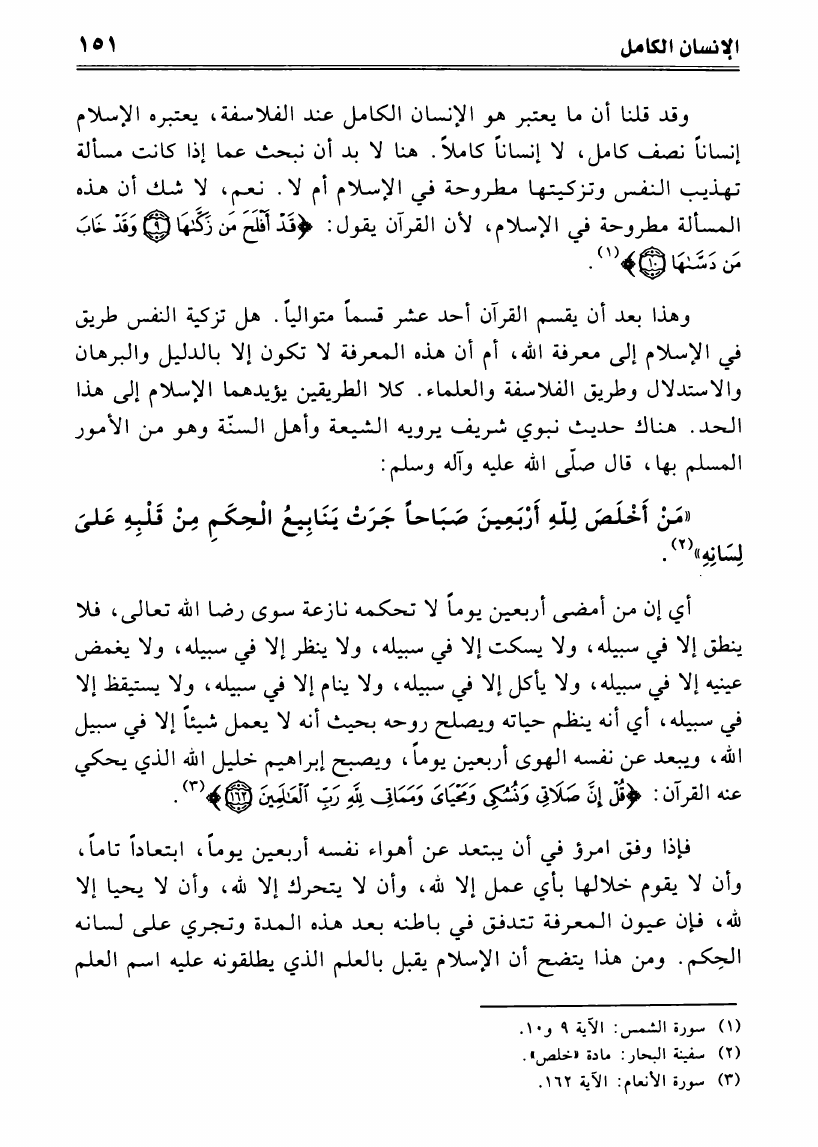 الإنسان الكامل ١٥١
وقد قلنا أن ما يعتبر هو الإنسان الكامل عند الفلاسفة، يعتبره الإسلام
إنساناً نصف كامل، لا إنساناً كاملاً. هنا لا بد أن نبحث عما إذا كانت مسألة
تهذيب النفس وتزكيتها مطروحة في الإسلام أم لا. نعم، لا شك أن هذه
المسألة مطروحة في الإسلام، لأن القرآن يقول: ﴿قَدْ أَفْلَحَ مَن زَكَّىٰهَا ۝٩ وَقَدْ خَابَ
مَن دَسَّىٰهَا ۝١٠﴾(١).
وهذا بعد أن يقسم القرآن أحد عشر قسماً متوالياً. هل تزكية النفس طريق
في الإسلام إلى معرفة الله، أم أن هذه المعرفة لا تكون إلا بالدليل والبرهان
والاستدلال وطريق الفلاسفة والعلماء. كلا الطريقين يؤيدهما الإسلام إلى هذا
الحد. هناك حديث نبوي شريف يرويه الشيعة وأهل السنّة وهو من الأمور
المسلم بها، قال صلّى الله عليه وآله وسلم:
«مَنْ أَخْلَصَ لِلَّهِ أَرْبَعِينَ صَبَاحاً جَرَتْ يَنَابِيعُ الْحِكَمِ مِنْ قَلْبِهِ عَلىَ
لِسَانِهِ»(٢).
أي إن من أمضى أربعين يوماً لا تحكمه نازعة سوى رضا الله تعالى، فلا
ينطق إلا في سبيله، ولا يسكت إلا في سبيله، ولا ينظر إلا في سبيله، ولا يغمض
عينيه إلا في سبيله، ولا يأكل إلا في سبيله، ولا ينام إلا في سبيله، ولا يستيقظ إلا
في سبيله، أي أنه ينظم حياته ويصلح روحه بحيث أنه لا يعمل شيئاً إلا في سبيل
الله، ويبعد عن نفسه الهوى أربعين يوماً، ويصبح إبراهيم خليل الله الذي يحكي
عنه القرآن: ﴿قُلْ إِنَّ صَلَاتِى وَنُسُكِى وَمَحْيَاىَ وَمَمَاتِى لِلَّهِ رَبِّ ٱلْعَـٰلَمِينَ ۝١٦٢﴾(٣).
فإذا وفق امرؤ في أن يبتعد عن أهواء نفسه أربعين يوماً، ابتعاداً تاماً،
وأن لا يقوم خلالها بأي عمل إلا لله، وأن لا يتحرك إلا لله، وأن لا يحيا إلا
لله، فإن عيون المعرفة تتدفق في باطنه بعد هذه المدة وتجري على لسانه
الحِكم. ومن هذا يتضح أن الإسلام يقبل بالعلم الذي يطلقونه عليه اسم العلم
(١) سورة الشمس: الآية ٩ و١٠.
(٢) سفينة البحار: مادة «خلص».
(٣) سورة الأنعام: الآية ١٦٢.